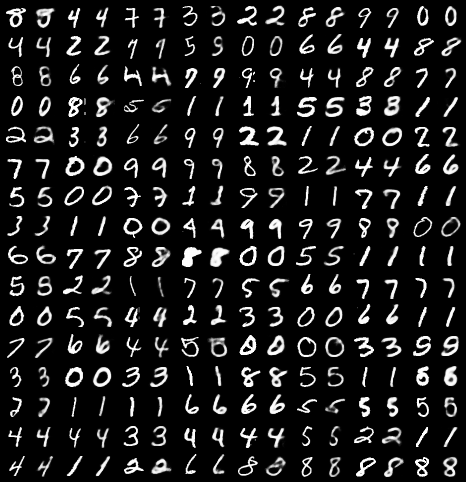 8 8 4 4 7 7 3 3 2 2 8 8 9 9 0 0
4 4 2 2 7 7 5 5 0 0 6 6 4 4 8 8
8 8 6 6 4 4 7 9 9 9 4 4 8 8 7 7
0 0 8 8 5 5 1 1 1 1 5 5 3 3 1 1
2 2 3 3 6 6 9 9 2 2 1 1 0 0 2 2
7 7 0 0 9 9 9 9 8 8 2 2 4 4 6 6
5 5 0 0 7 7 1 1 9 9 1 1 7 7 1 1
3 3 1 1 0 0 4 4 9 9 9 9 8 8 0 0
6 6 7 7 8 8 8 8 0 0 5 5 1 1 1 1
5 5 2 2 1 1 7 7 5 5 6 6 7 7 7 7
0 0 5 5 4 4 2 2 3 3 0 0 6 6 1 1
7 7 6 6 4 4 5 5 0 0 0 0 3 3 9 9
3 3 0 0 3 3 1 1 8 8 5 5 1 1 6 6
2 2 1 1 1 1 6 6 6 6 5 5 5 5 5 5
4 4 4 4 3 3 4 4 4 4 5 5 2 2 1 1
4 4 1 1 2 2 6 6 8 8 8 8 8 8 8 8